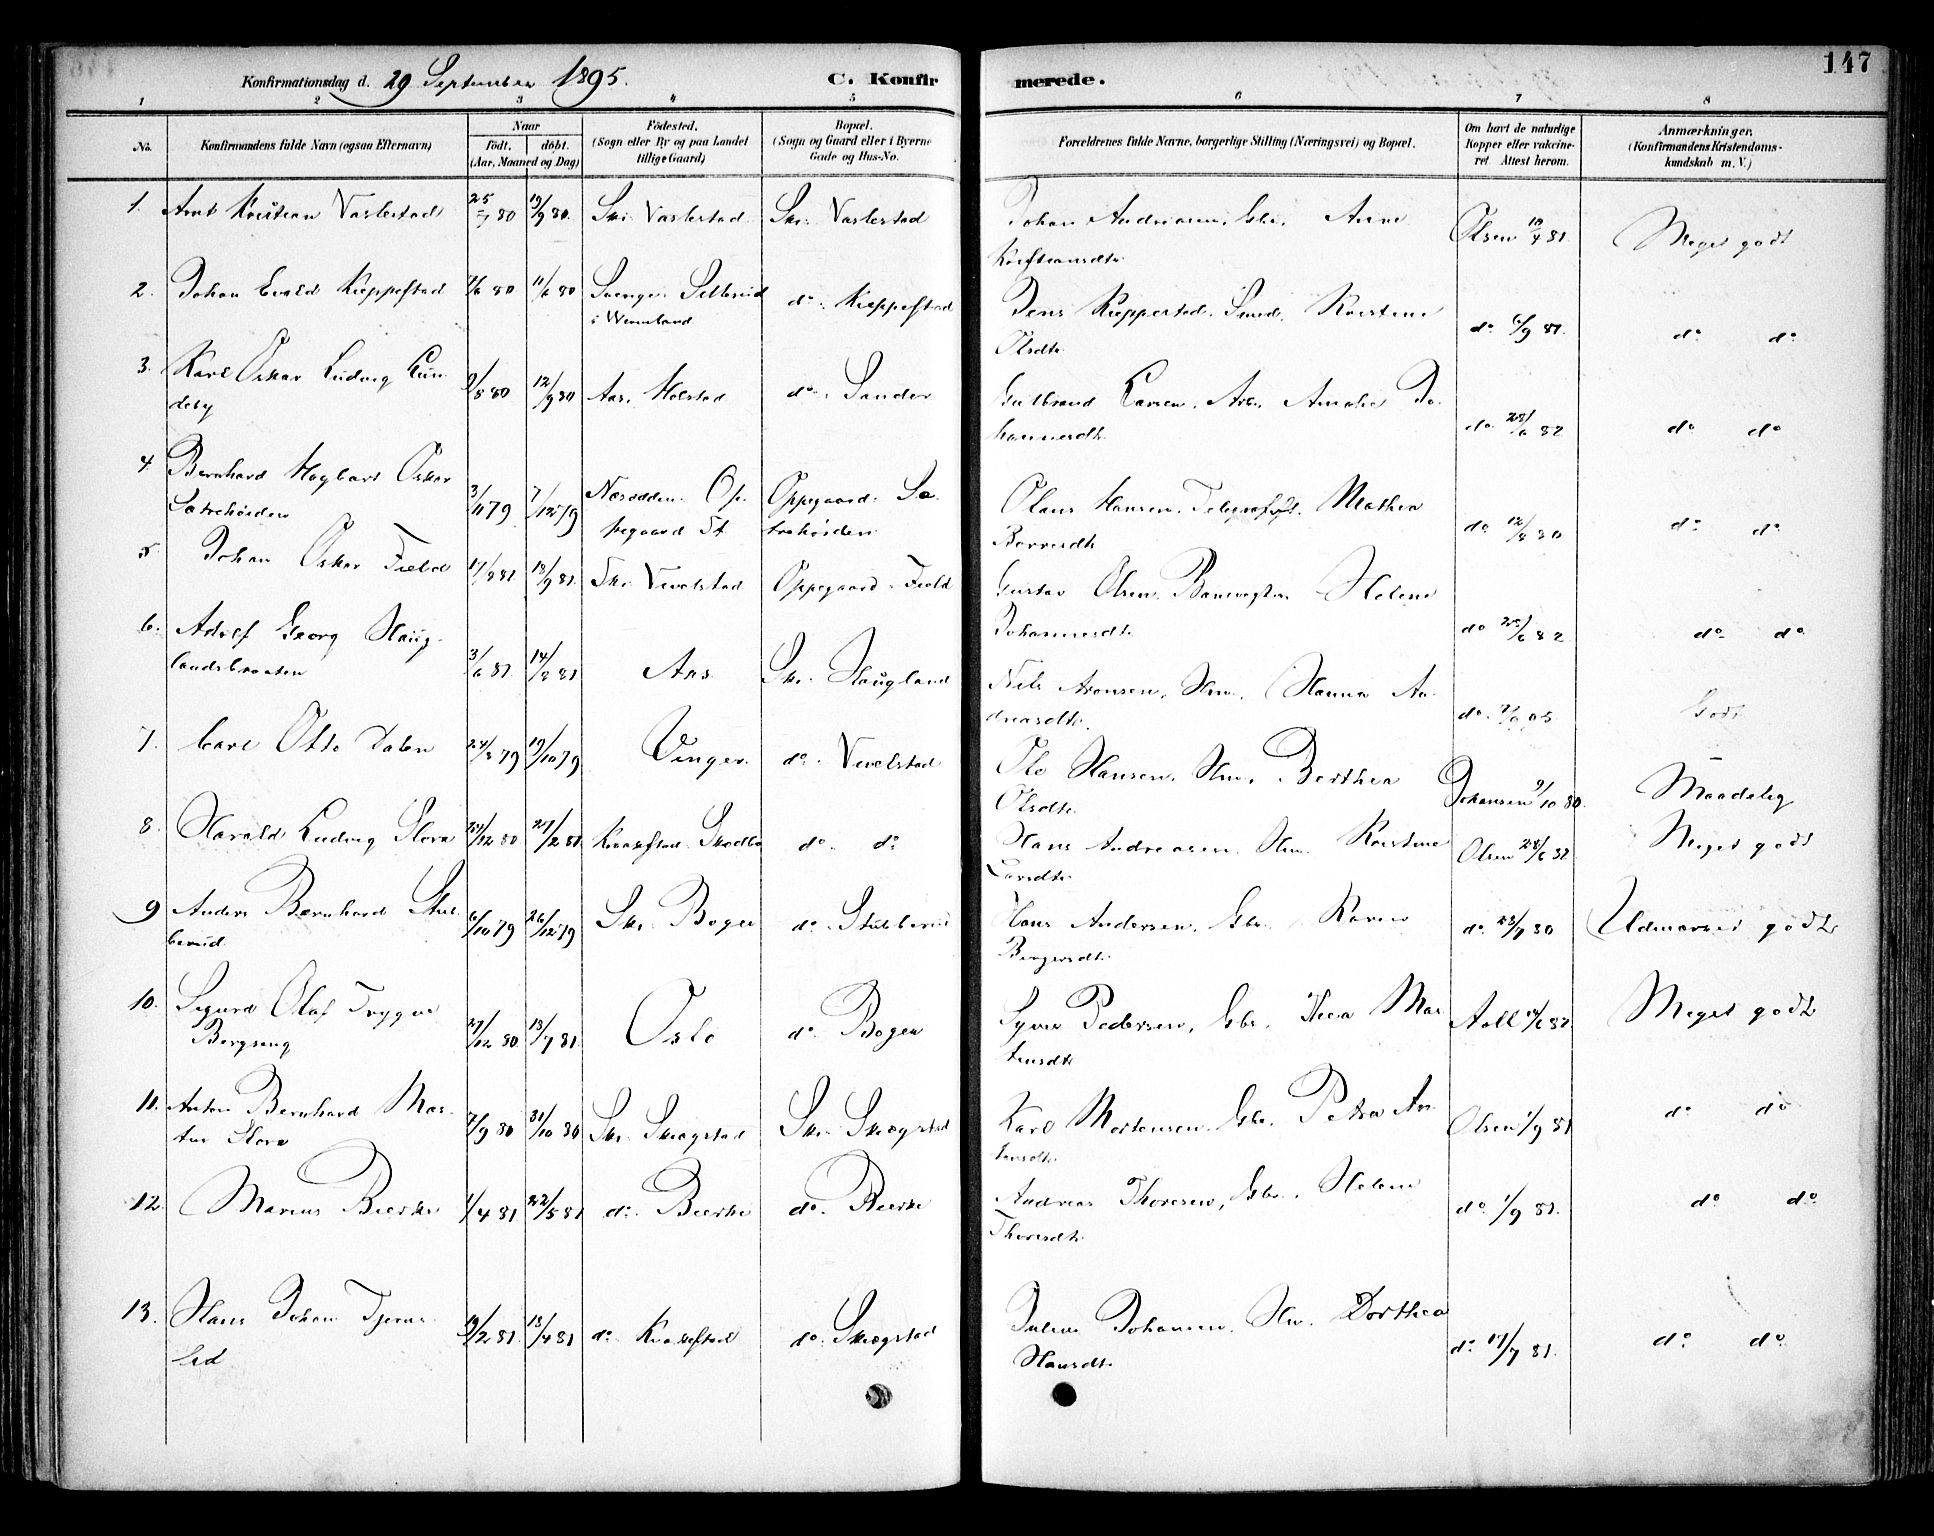 147
Konfirmationsdag d. 29 September 1895. C. Konfirmerede.
1 2 3 4 5 6 7 8
No. Konfirmandens fulde Navn (ogsaa Efternavn) Naar født. døbt. (Aar, Maaned og Dag) Fødested. (Sogn eller By og paa Landet tillige Gaard) Bopæl. (Sogn og Gaard eller i Byerne Gade og Hus-No. Forældrenes fulde Navne, borgerlige Stilling (Næringsvei) og Bopæl. Om havt de naturlige Kopper eller vakcineret. Attest herom. Anmærkninger. (Konfirmandens Kristendomskundskab m. V.)
1. Arnt Kristian Vaslestad 25/7 80 19/9 80. Ski Vaslestad Ski. Vaslestad Johan Andreasen, Gbr. Anne
Kristiansdtr. Olsen 81. Meget godt
2. Johan Evald Kieppestad 7/6 80 11/6 80 Svenge. Silbrud do. Kieppestad Jens Kieppestad. Smed. Kristine
i Wermland Olsdtr. do 6/9 81. do do
3. Karl Oskar Ludvig Lun- 2/8 80 12/9 80 Aas. Holstad do. Sander Gulbrand Larsen. Arb. Amalie Jo-
deby hannesdtr. do 28/6 82 do do
4. Bernhard Hagbart Oskar 3/11 79 7/12 79 Næsodden. Op- Oppegaard. Sæ- Olaus Hansen. Telegrafist. Mathea
Sætrehøiden pegaard St trehøiden do 12/8 80 do do
5 Johan Oskar Fjeld 17/8 81 18/9 81. Ski Vevelstad Oppegaard. Fjeld Gustav Olsen. Banevogter. Helene
Johannesdtr. do 28/6 82 do do
6. Adolf Georg Haug- 3/6 81 14/8 81 Aas Ski. Haugland Nils Aronsen, Hm. Hanna An-
landsbraaten dreasdtr. do. Godt
7. Carl Otto Dalen 24/8 79 19/10 79 Vinger. do. Vevelstad Ole Hansen. Hm. Berthea
Olsdtr. Johansen 9/10 80. Maadelig
8. Harald Ludvig Flora 29/12 80 27/2 81 Kraakstad. Skodbo do. do. Hans Andreasen. Hm. Kristine
Larsdtr. Olsen 28/6 82 Meget godt
9 Anders Bernhard Stub- 6/10 79 26/12 79 Ski. Bøgen do. Stubberud Hans Andersen. Gbr. Karen
berud. Bergersdtr. do. 23/9 80 Udmærket godt
10. Sigurd Olaf Trygve 27/12 80 13/7 81. Oslo do. Bøgen Syver Pedersen, Gbr. Thea Mar-
Bergseng tinsdtr Aall 14/6 82. Meget godt
11. Anton Bernhard Mar- 7/9 80 31/10 80 Ski. Skogstad Ski. Skogstad Karl Mortensen. Gbr. Petra An-
tin Flora tonsdtr. Olsen 1/9 81 do do
12. Marius Bierke 1/4 81 22/5 81 do. Bierke do. Bierke Andreas Thoresen, Gbr. Helene
Thoresdtr. do. 1/9 81. do do
13. Hans Johan Tjerns- 19/2 81. 18/4 81 do. Kraakstad do. Skogstad Julius Johansen. Hm. Dorthea
lid Hansdtr. do. 17/7 81. do do